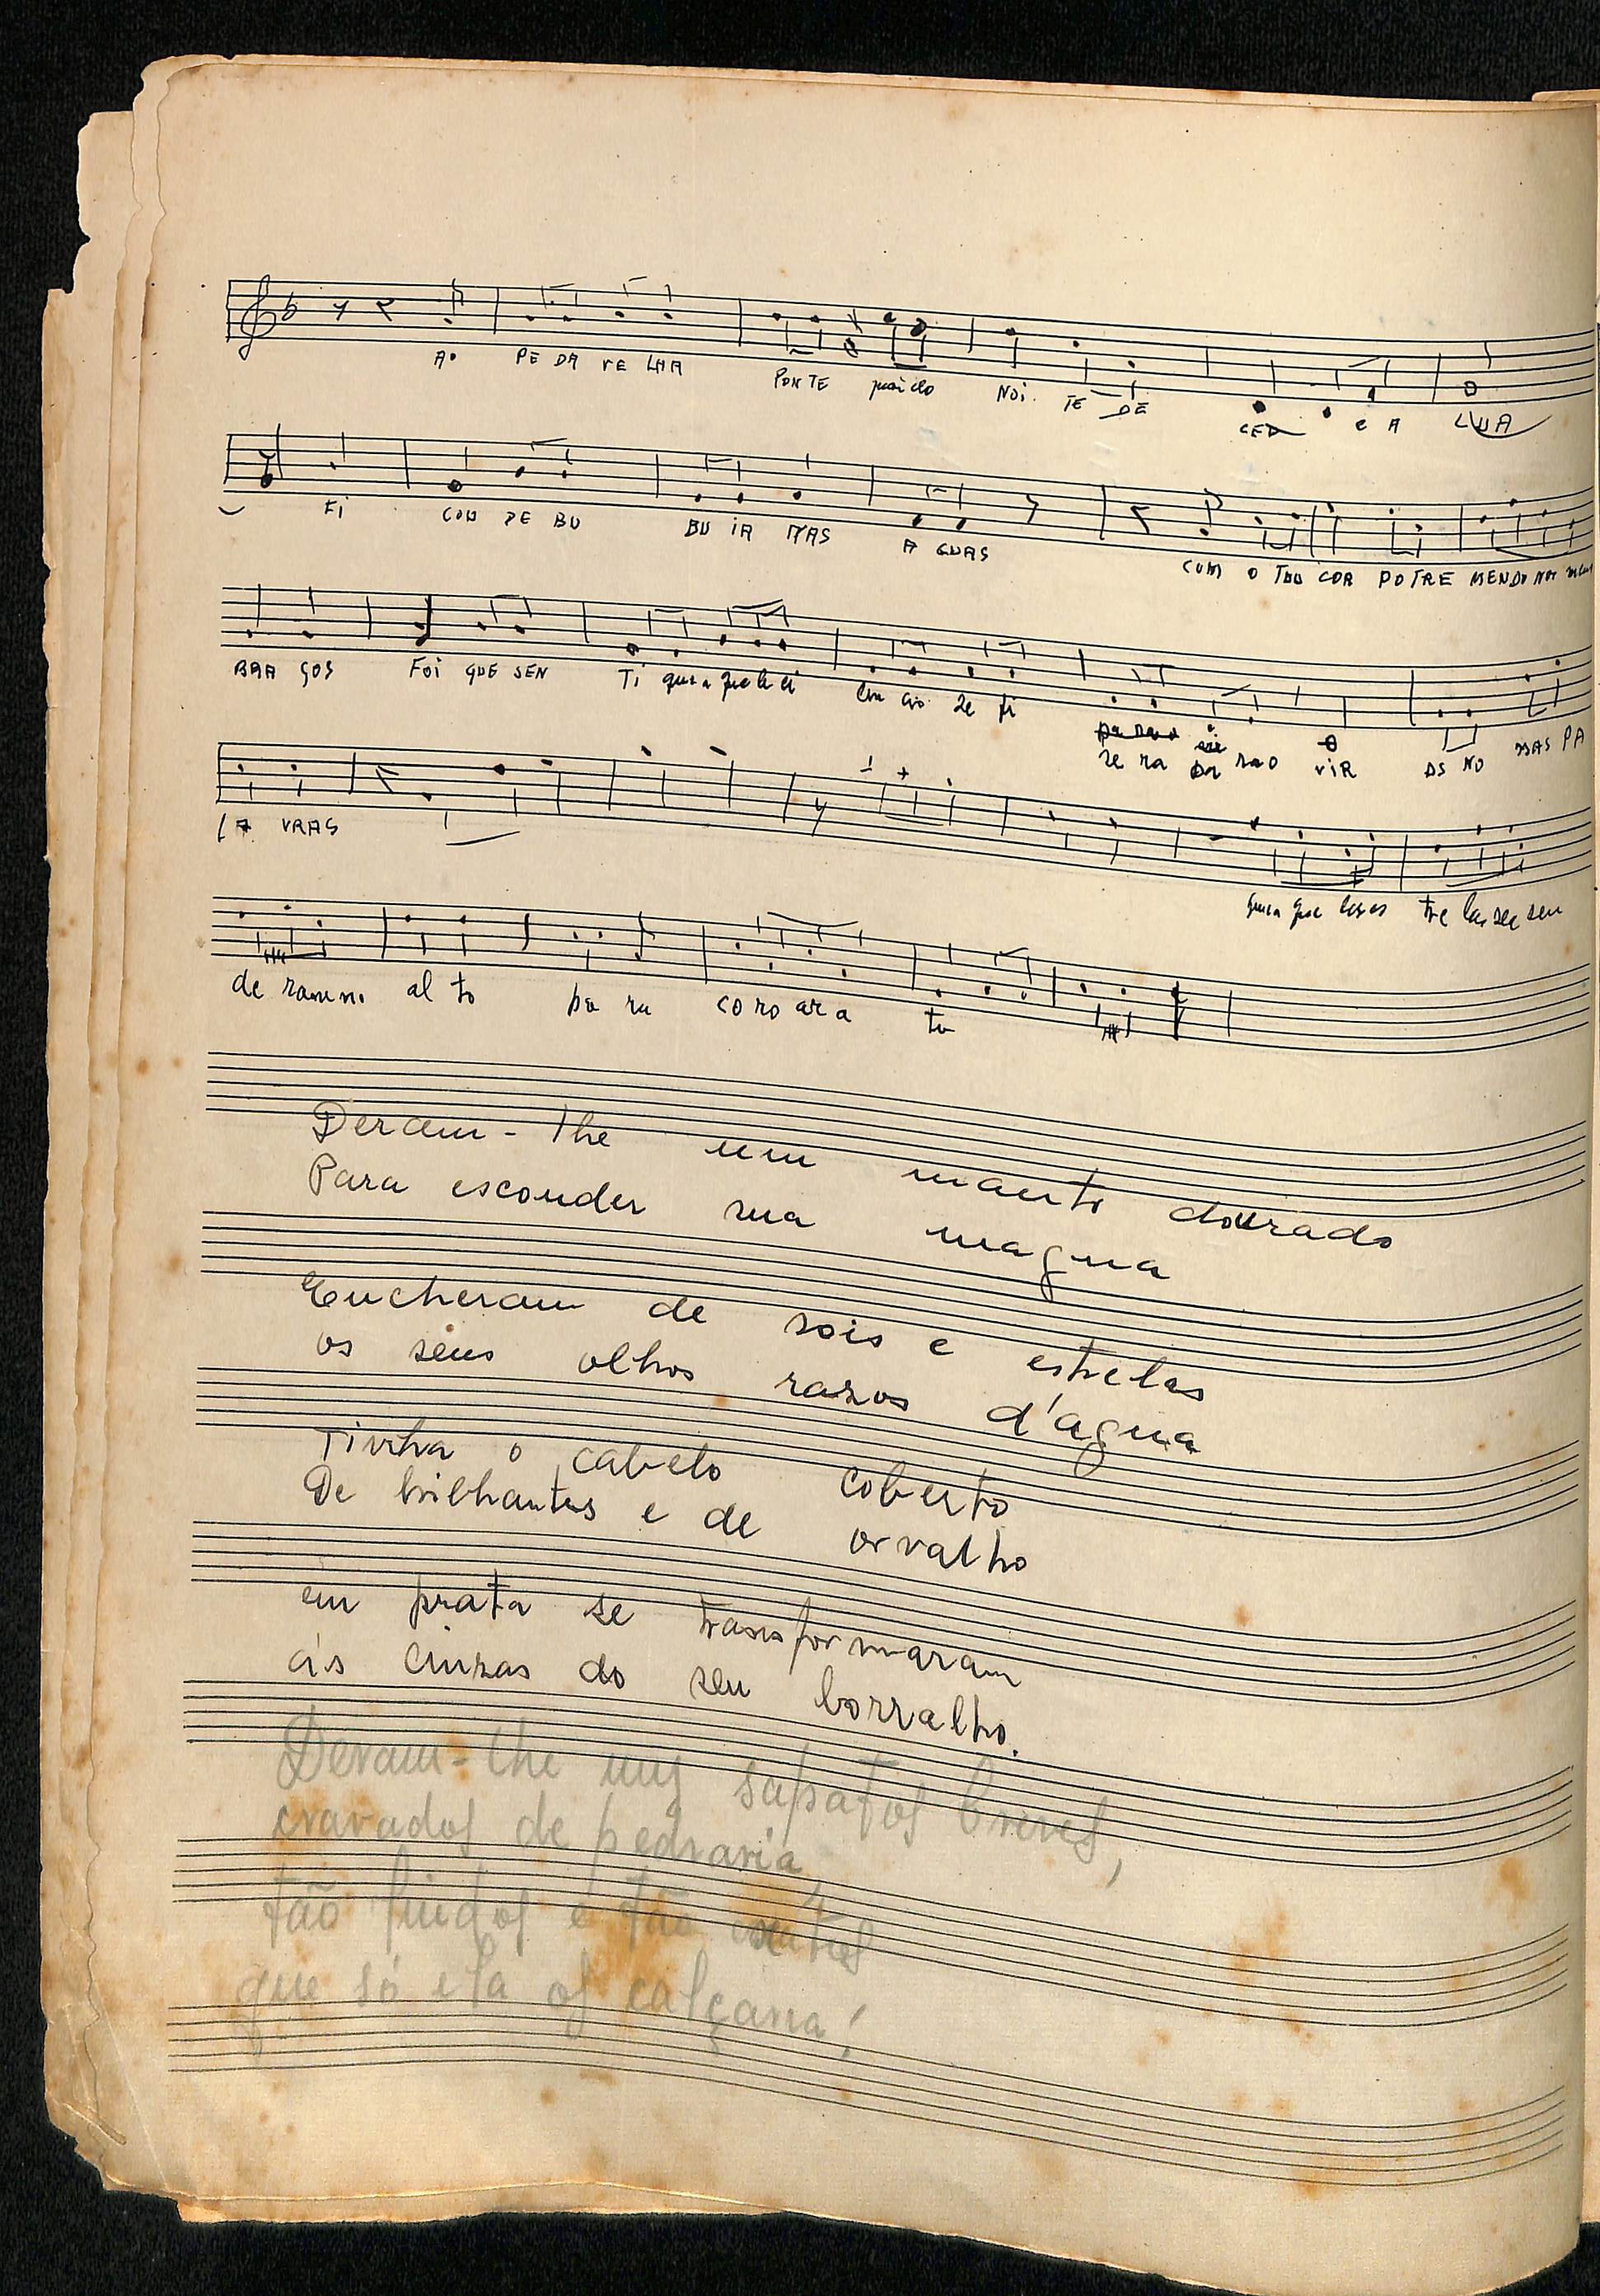 AO PE DA VE LHA PON TE NOI TE DE CED e A LUA
BU BU IA NAS A GUAS COM O TEU COR PO TRE MENDO NOS
BRA ÇOS FOI QUE SEN TI que a se pa ra rão VIR AS NO SSAS PA
LA VRAS que as tre las see seu
de ramm al to pa ra co ro ar a tu
Deram-lhe um manto dourado
Para esconder sua magua
Encheram de sois e estrelas
os seus olhos razos d'agua
Tinha o cabelo coberto
De brilhantes e de orvalho
em prata se transformaram
ás cinzas do seu borralho.
Deram-lhe uns sapatos breves,
cravados de pedraria,
tão lindos e tão
que só ela os calçaria!